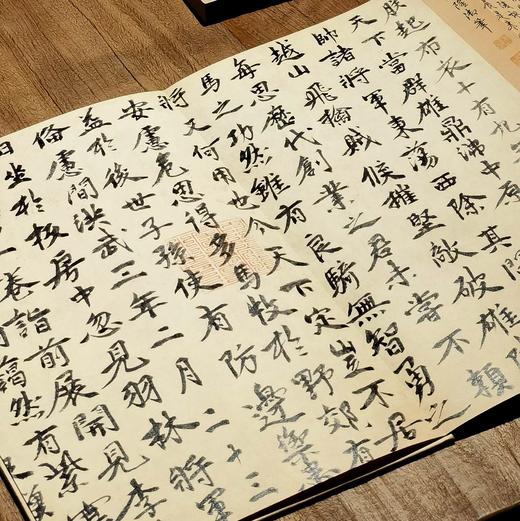 朕起布衣十有九
天下當群雄鼎沸中原
帥諸將軍東蕩西除其
越山飛擒賊候摧堅敵破雄
每思歷代創業之君未嘗不頼
馬之功然雖有良騎無智勇之
將又何用也今天下定豈不居
安慮危思得多馬牧於野郊有
益於後世子孫使有防邊禦患
備慮間洪武三年二月二十三
日坐於板房中忽見羽林將軍
一卷詣前展開見李
藹然有紫塞